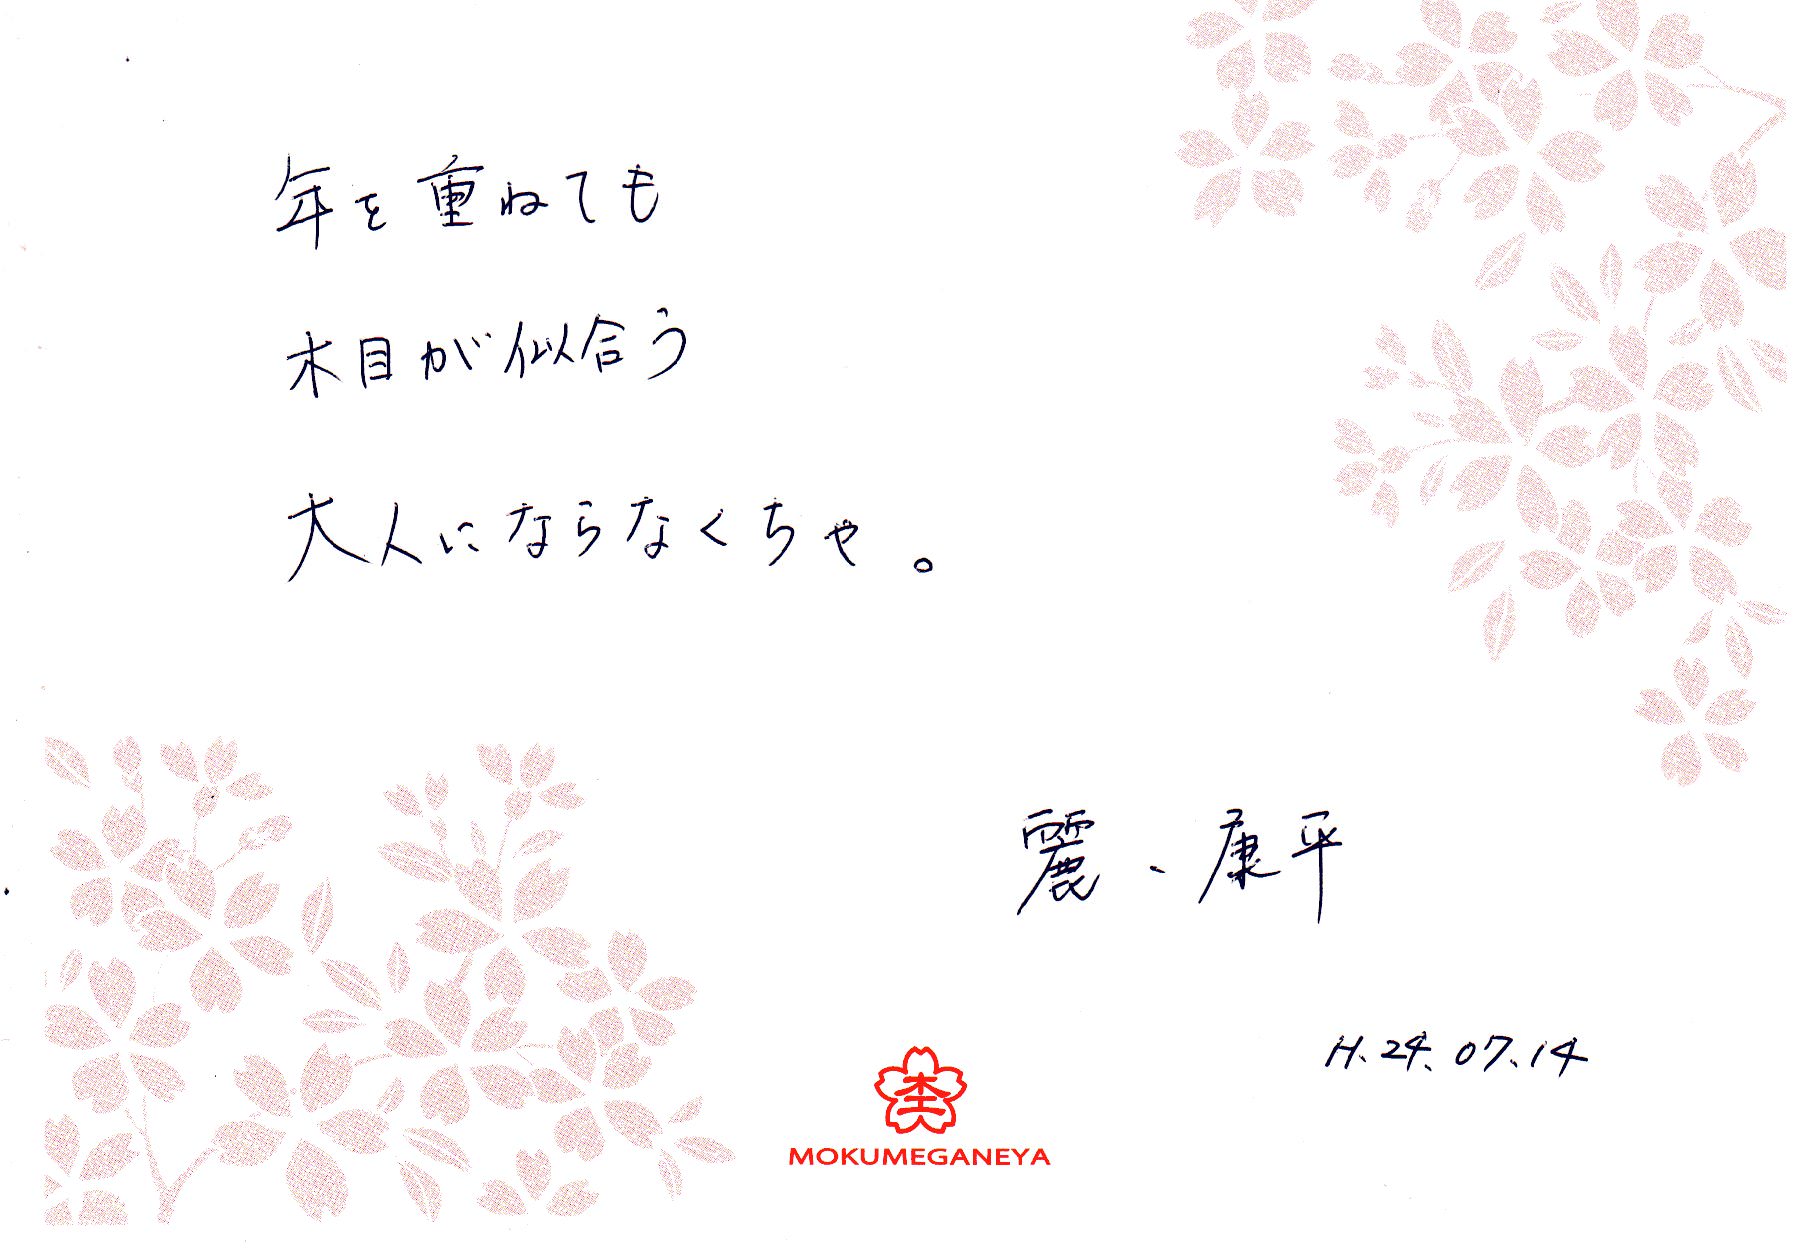 年を重ねても
木目が似合う
大人にならなくちゃ。
麗、康平
H.24.07.14
MOKUMEGANEYA